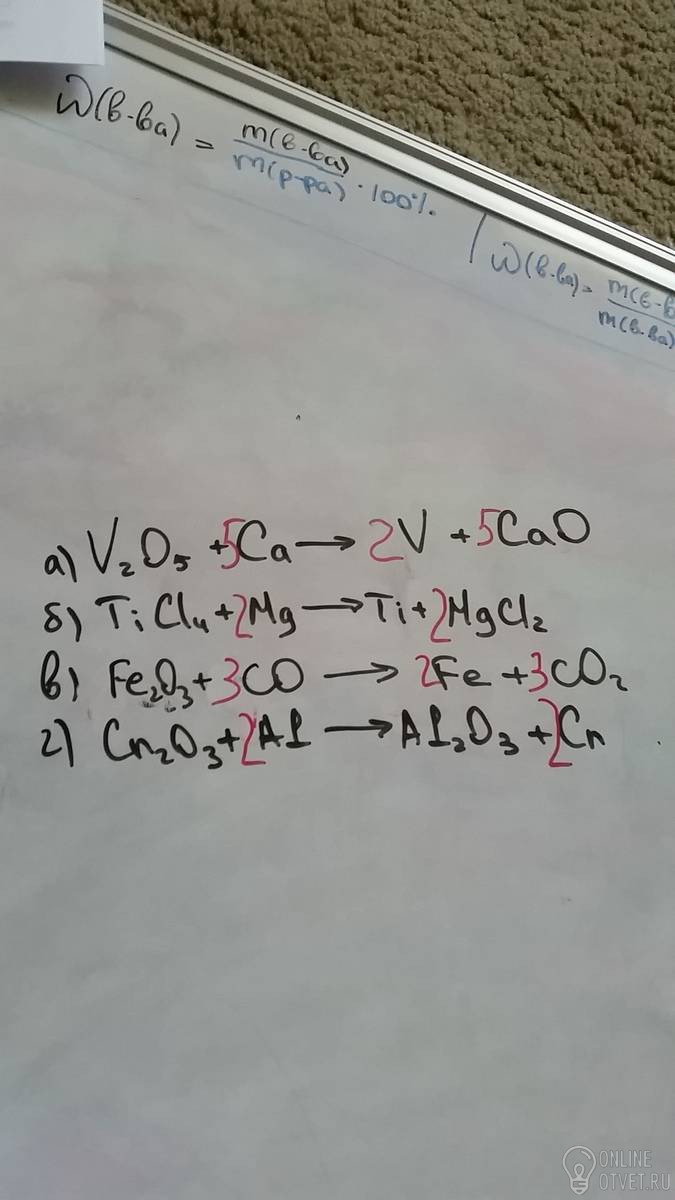 W(в-ва) = m(в-ва) / m(р-ра) · 100%
W(в-ва) = m(в-в / m(в-ва)
а) V₂O₅ + 5Ca → 2V + 5CaO
б) TiCl₄ + 2Mg → Ti + 2MgCl₂
в) Fe₂O₃ + 3CO → 2Fe + 3CO₂
г) Cr₂O₃ + 2Al → Al₂O₃ + 2Cr
ONLINE
OTVET.RU